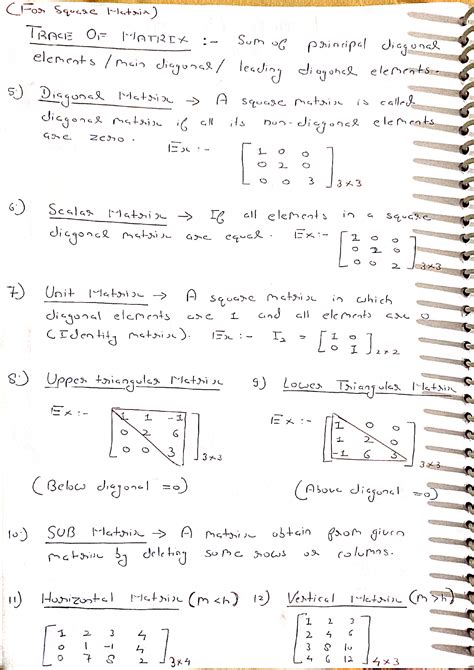 (For Square Matrix)
TRACE OF MATRIX :- Sum of principal diagonal
elements / main diagonal / leading diagonal elements.
5) Diagonal Matrix → A square matrix is called
diagonal matrix if all its non-diagonal elements
are zero. Ex :- [ 1 0 0
0 2 0
0 0 3 ] 3×3
6) Scalar Matrix → If all elements in a square
diagonal matrix are equal. Ex :- [ 2 0 0
0 2 0
0 0 2 ] 3×3
7) Unit Matrix → A square matrix in which
diagonal elements are 1 and all elements are 0
(Identity matrix). Ex :- I₂ = [ 1 0
0 1 ] 2×2
8) Upper triangular Matrix 9) Lower Triangular Matrix
Ex :- [ 1 1 -1 Ex :- [ 1 0 0
0 2 6 1 2 0
0 0 3 ] 3×3 -1 6 3 ] 3×3
(Below diagonal =0) (Above diagonal =0)
10) SUB Matrix → A matrix obtain from given
matrix by deleting some rows or columns.
11) Horizontal Matrix (m<n) 12) Vertical Matrix (m>n)
[ 1 2 3 4 [ 1 2 3
0 1 -1 4 2 4 6
0 7 8 2 ] 3×4 3 8 10
4 6 12 ] 4×3